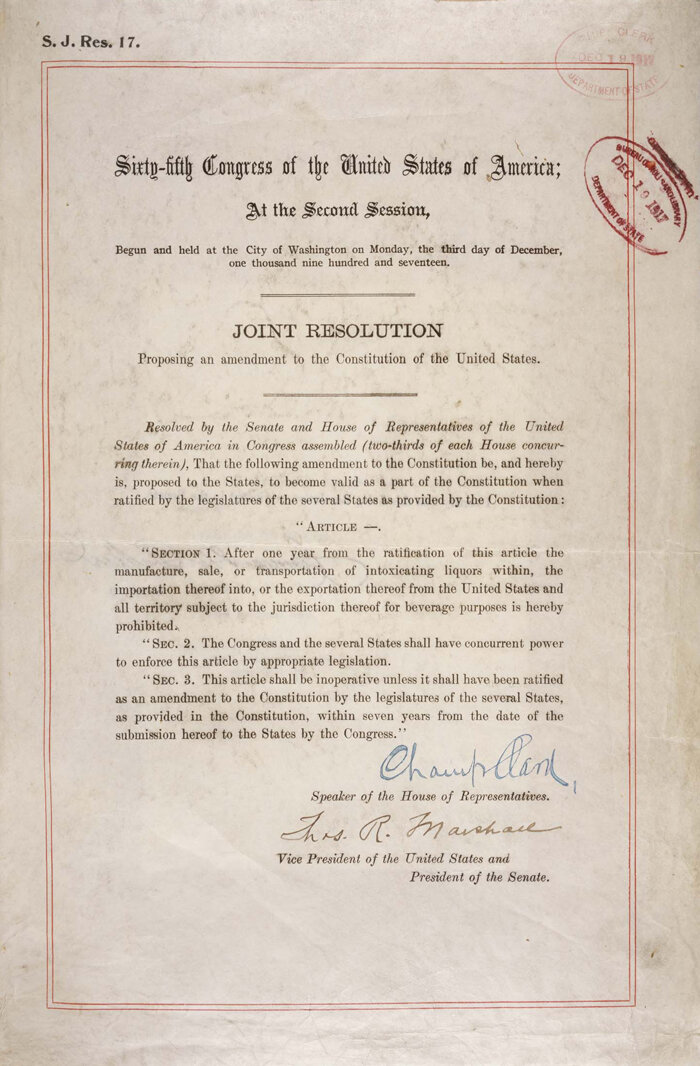 S. J. Res. 17.
CHIEF CLERK
DEC 19 1917
DEPARTMENT OF STATE
Sixty-fifth Congress of the United States of America;
At the Second Session,
DEC 19 1917
DEPARTMENT OF STATE
Begun and held at the City of Washington on Monday, the third day of December,
one thousand nine hundred and seventeen.
JOINT RESOLUTION
Proposing an amendment to the Constitution of the United States.
Resolved by the Senate and House of Representatives of the United
States of America in Congress assembled (two-thirds of each House concur-
ring therein), That the following amendment to the Constitution be, and hereby
is, proposed to the States, to become valid as a part of the Constitution when
ratified by the legislatures of the several States as provided by the Constitution:
"ARTICLE —.
"SECTION 1. After one year from the ratification of this article the
manufacture, sale, or transportation of intoxicating liquors within, the
importation thereof into, or the exportation thereof from the United States and
all territory subject to the jurisdiction thereof for beverage purposes is hereby
prohibited.
"SEC. 2. The Congress and the several States shall have concurrent power
to enforce this article by appropriate legislation.
"SEC. 3. This article shall be inoperative unless it shall have been ratified
as an amendment to the Constitution by the legislatures of the several States,
as provided in the Constitution, within seven years from the date of the
submission hereof to the States by the Congress."
Champ Clark
Speaker of the House of Representatives.
Thos. R. Marshall
Vice President of the United States and
President of the Senate.